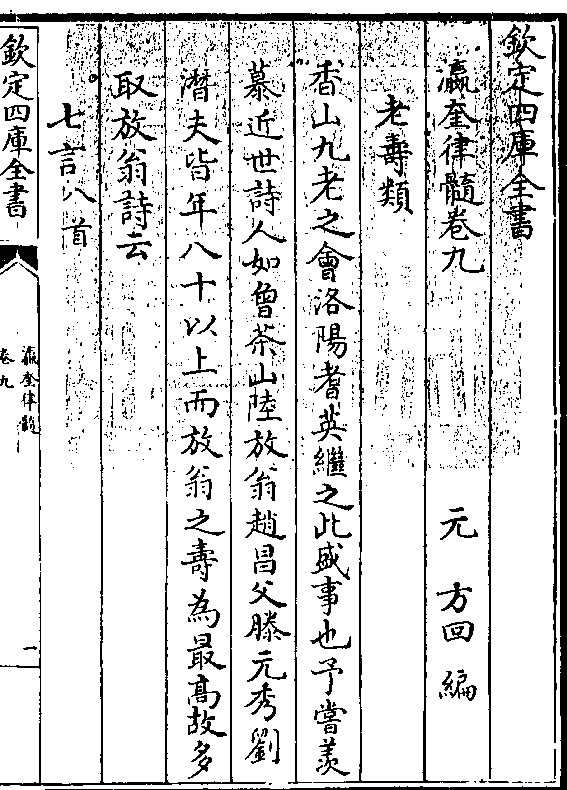 欽定四庫全書
瀛奎律髓卷九 元 方回 編
老壽類
香山九老之會洛陽耆英繼之此盛事也予嘗羨
慕近世詩人如曾茶山陸放翁趙昌父滕元秀劉
潛夫皆年八十以上而放翁之壽為最高故多
取放翁詩云
七言八首
欽定四庫全書
瀛奎律髓
卷九
一